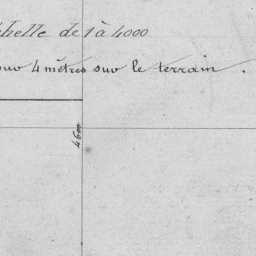 chelle de 1 à 4000
our 4 mètres sur le terrain.
4600